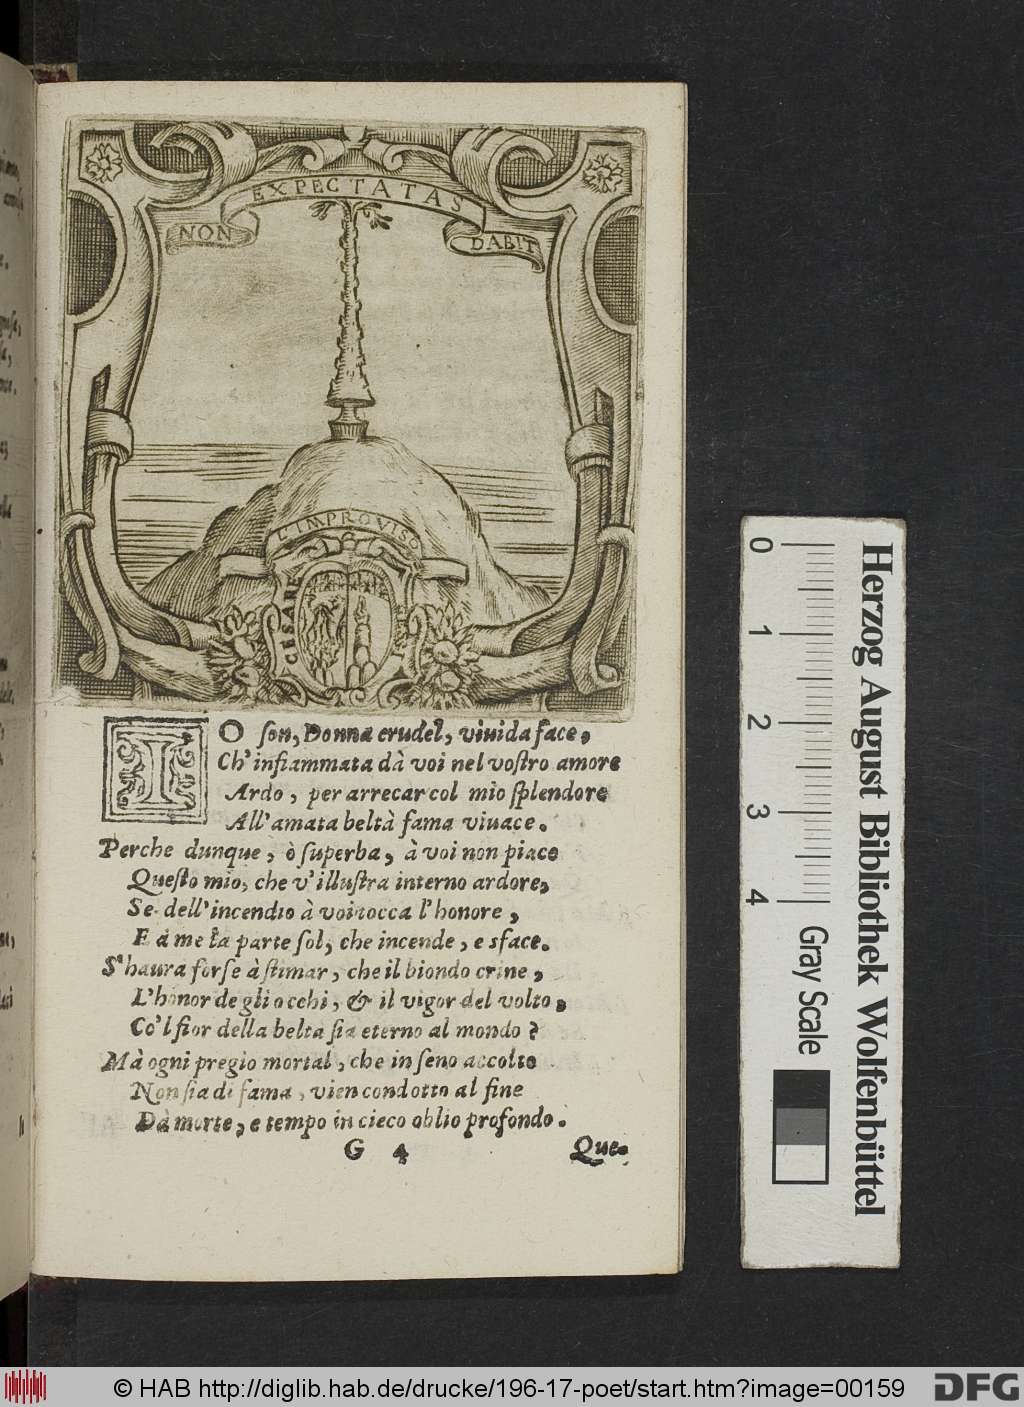 NON EXPECTATAS DABIT
L'IMPROVISO
CESARE
IO ſon, Donna crudel, viuida face,
Ch' infiammata dà voi nel voſtro amore
Ardo, per arrecar col mio ſplendore
All' amata beltà fama viuace.
Perche dunque, ò ſuperba, à voi non piace
Queſto mio, che v' illuſtra interno ardore,
Se dell' incendio à voi tocca l' honore,
E à me la parte ſol, che incende, e sface.
S' haura forſe à ſtimar, che il biondo crine,
L' honor degli occhi, & il vigor del volto,
Co'l fior della belta ſia eterno al mondo?
Mà ogni pregio mortal, che in ſeno accolto
Non ſia di fama, vien condotto al fine
Dà morte, e tempo in cieco oblio profondo.
G 4 Que-
0 1 2 3 4
Herzog August Bibliothek Wolfenbüttel
Gray Scale
© HAB http://diglib.hab.de/drucke/196-17-poet/start.htm?image=00159
DFG